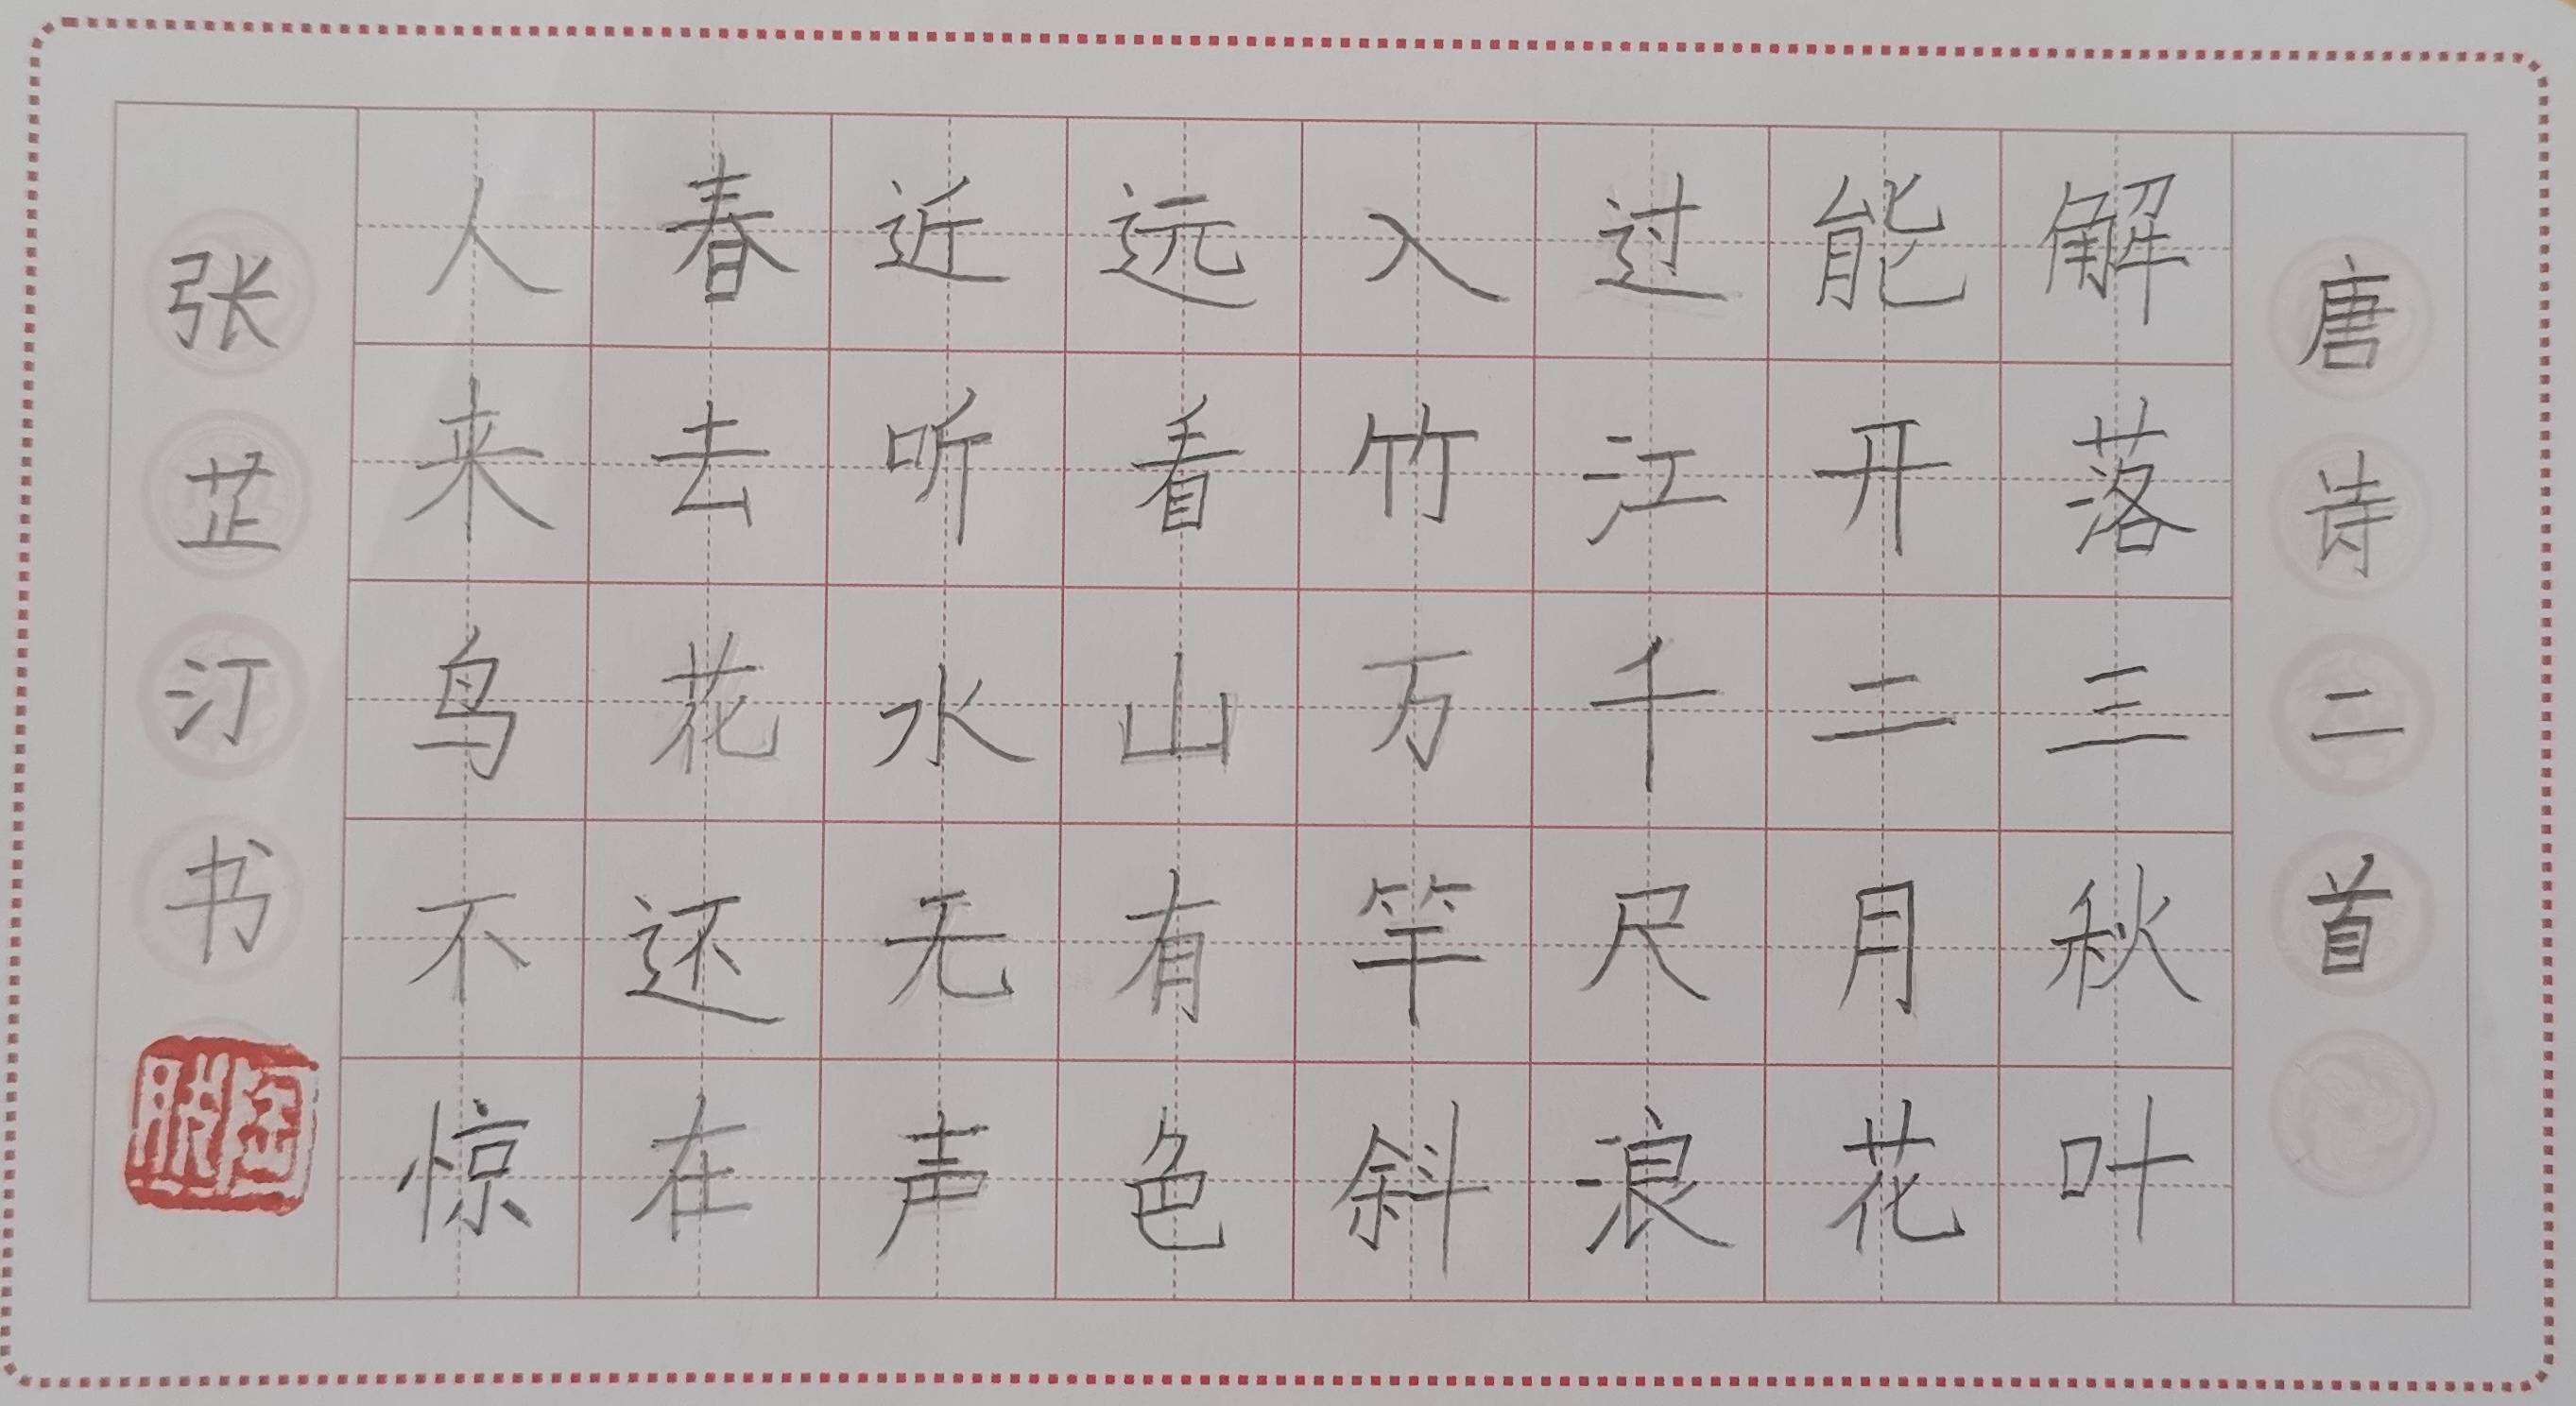 唐诗二首
解落三秋叶
能开二月花
过江千尺浪
入竹万竿斜
远看山有色
近听水无声
春去花还在
人来鸟不惊
张芷汀书